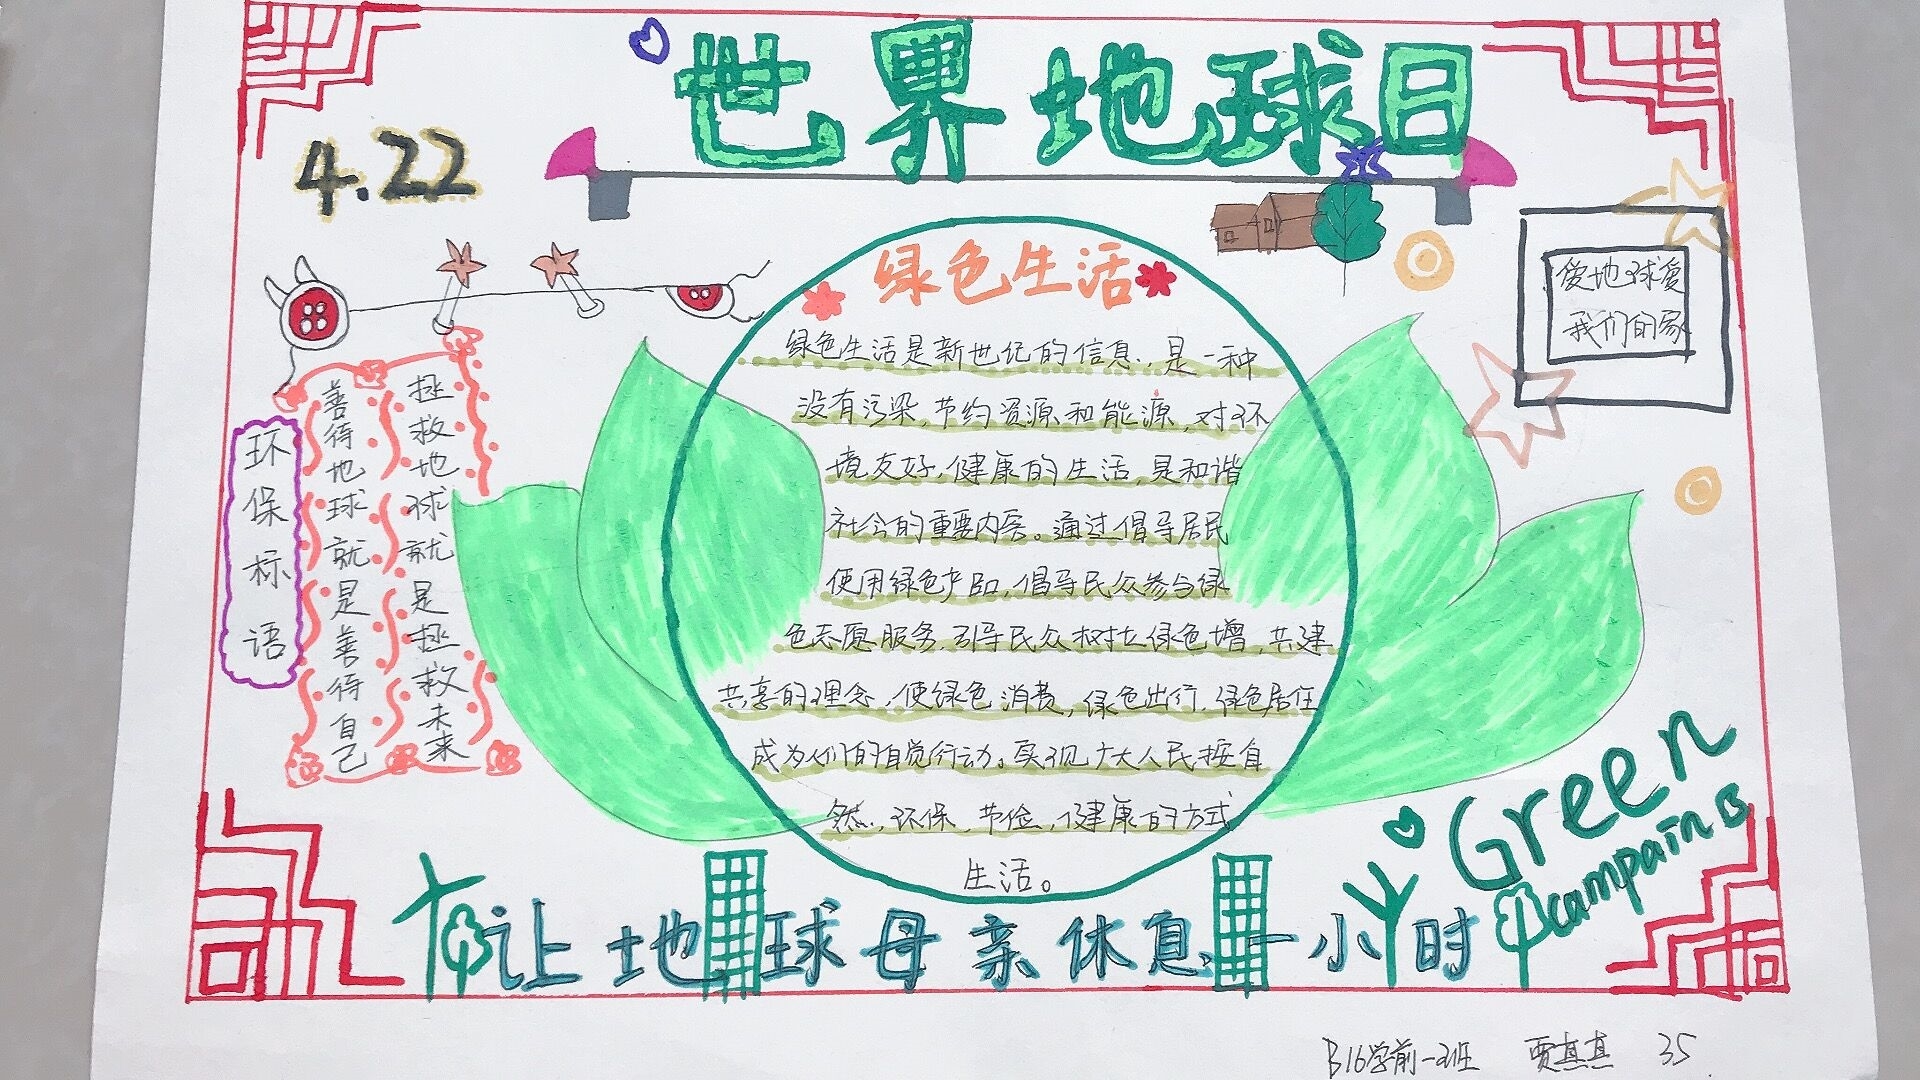 世界地球日
4.22
绿色生活
绿色生活是新世纪的信息，是一种
没有污染，节约资源和能源，对环
境友好，健康的生活，是和谐
社会的重要内容。通过倡导居民
使用绿色产品，倡导民众参与绿
色志愿服务，引导民众树立绿色增，共建
共享的理念，使绿色消费，绿色出行，绿色居住
成为人们的自觉行动。实现广大人民按自
然，环保，节俭，健康的方式
生活。
爱地球爱
我们的家
环保标语
善待地球就是善待自己
拯救地球就是拯救未来
Green
campain
让地球母亲休息一小时
B16学前一班 贾真真 35